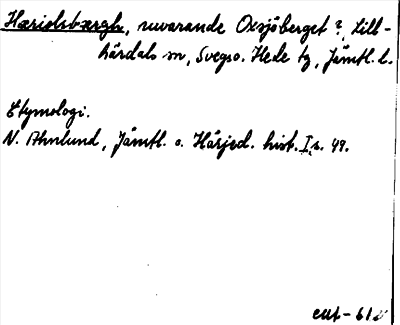 Hæriolsbærgh, nuvarande Oxsjöberget?, Lill-
härdals sn, Svegs o. Hede tg, Jämtl. l.
Etymologi.
N. Ahnlund, Jämtl. o. Härjed. hist. I, s. 49.